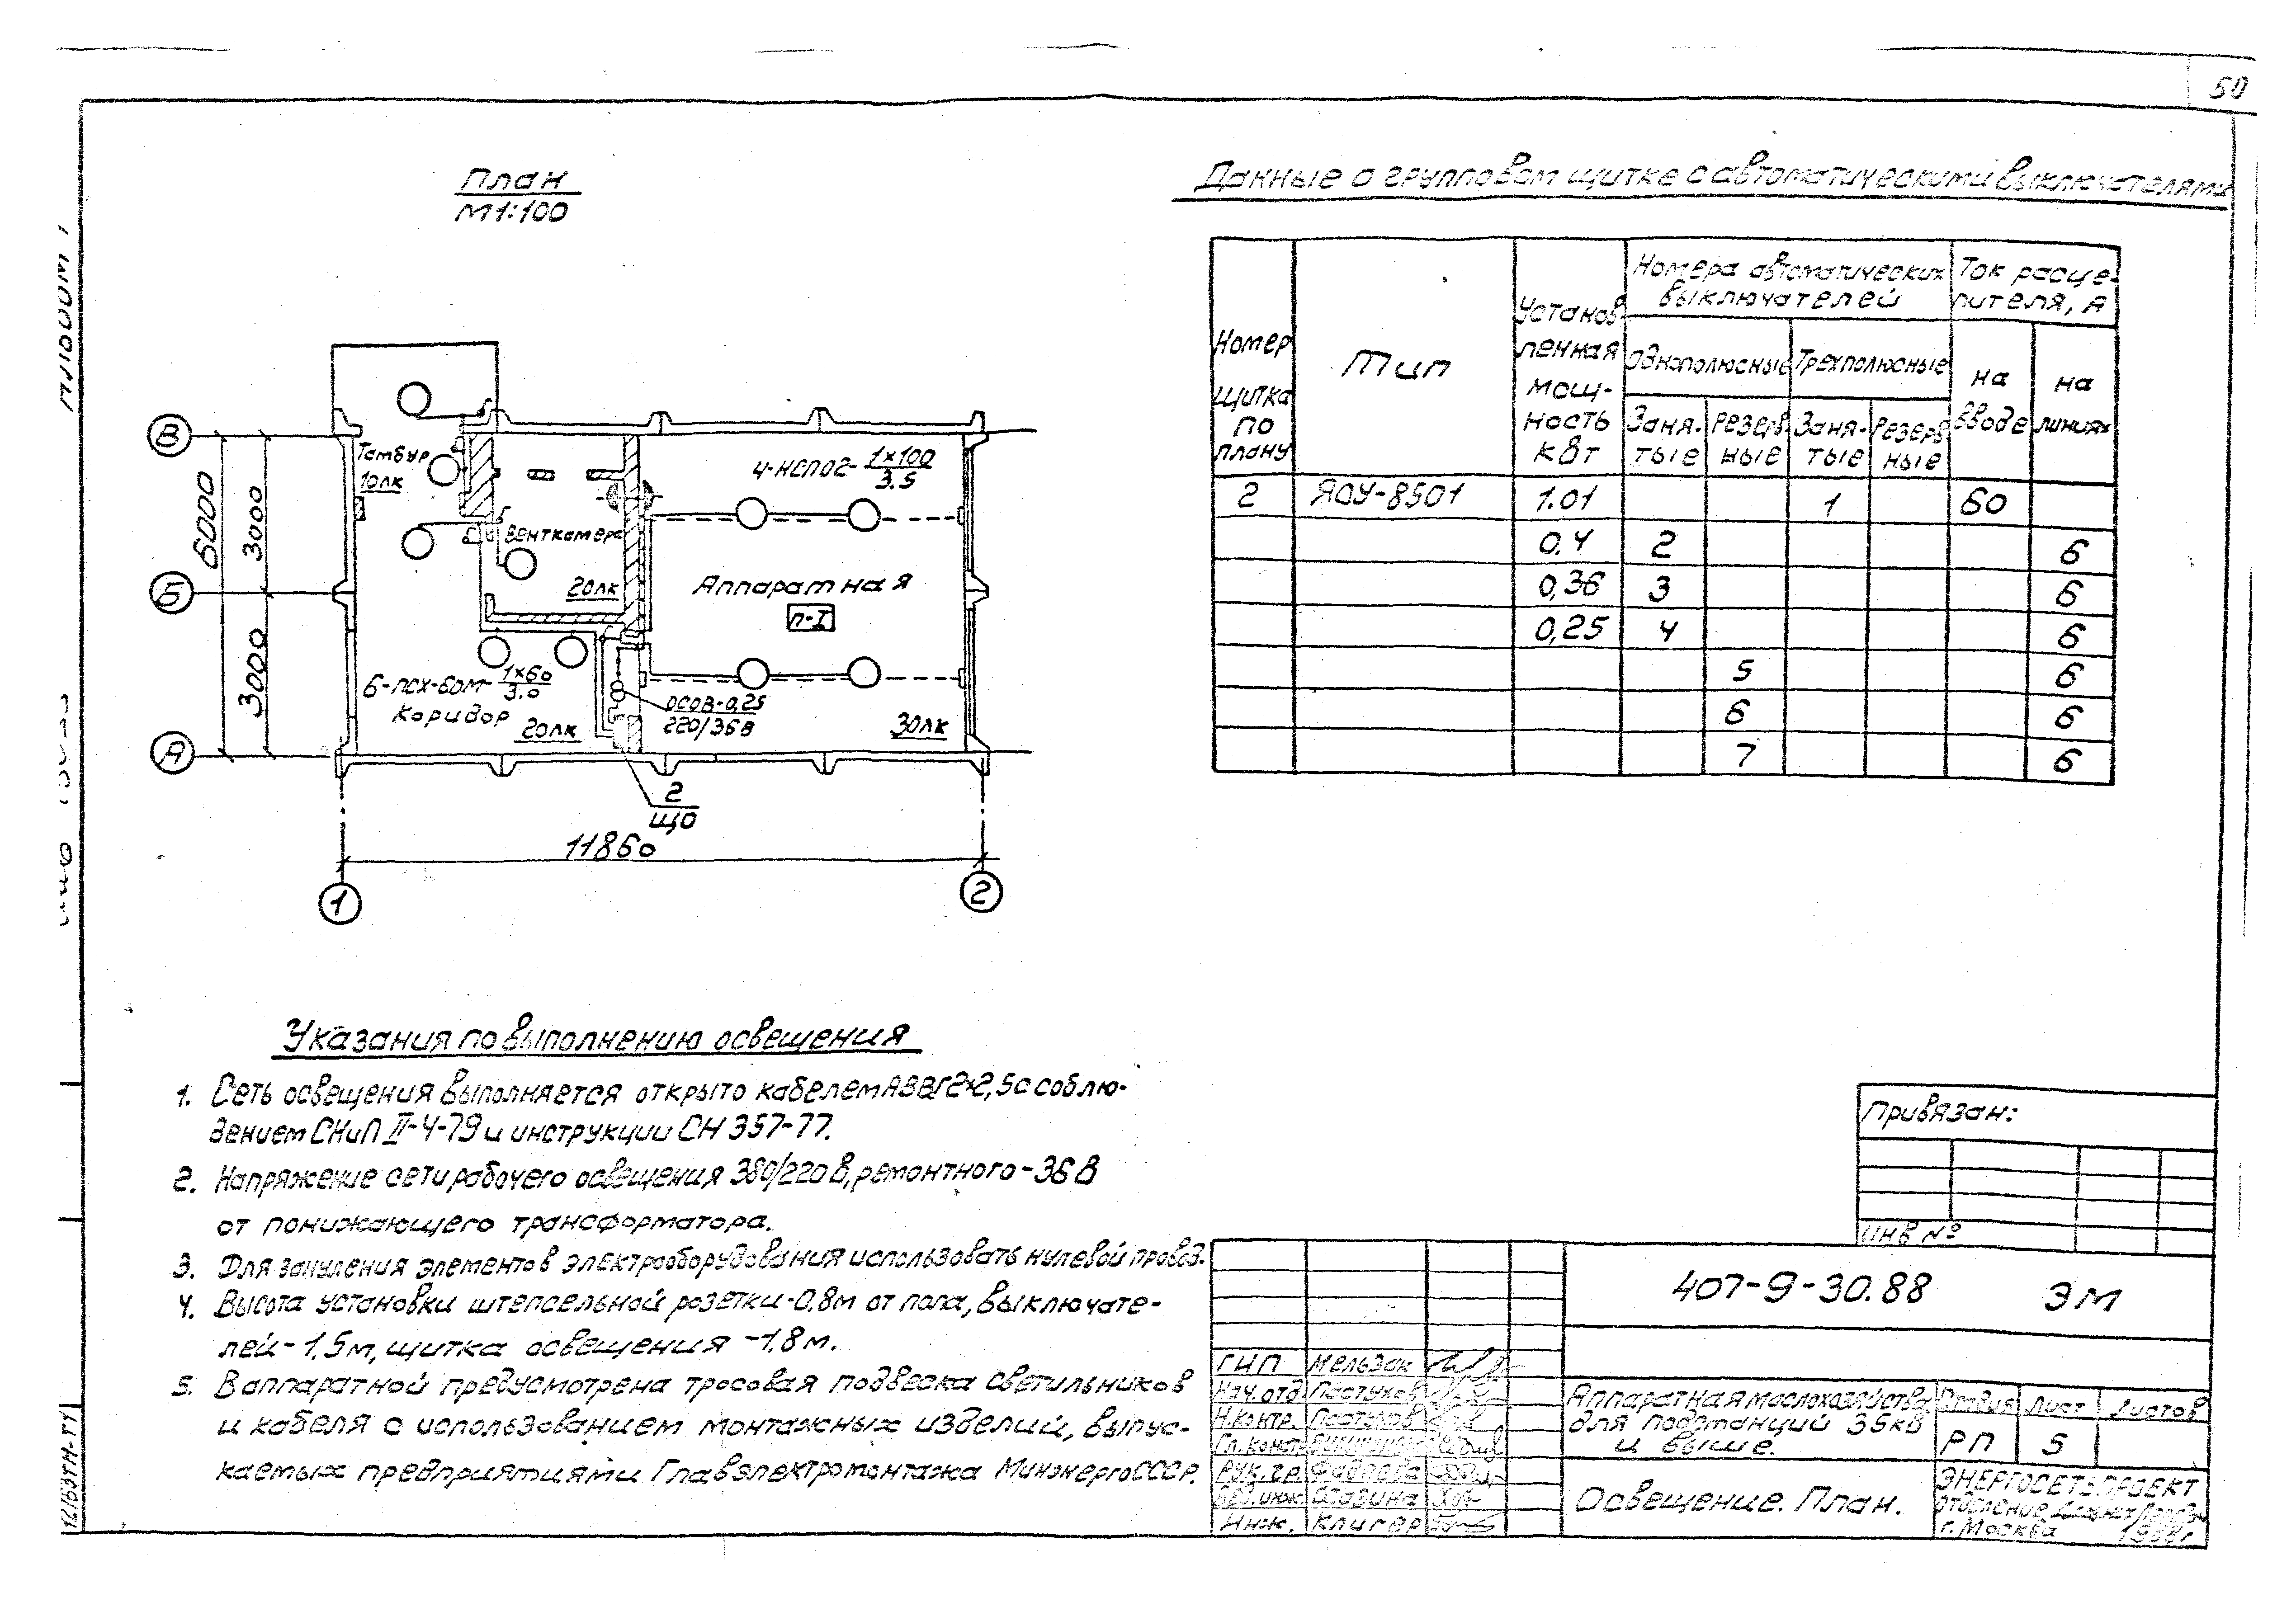 50
План
М1:100
Данные о групповом щитке с автоматическими выключателями
Номер щитка по плану
Тип
Установленная мощность кВт
Номера автоматических выключателей
Ток расцепителя, А
Однополюсные
Трехполюсные
на вводе
на линиях
Занятые
Резервные
Занятые
Резервные
2 ЯОУ-8501 1.01 1 60
0,4 2 6
0,36 3 6
0,25 4 6
5 6
6 6
7 6
В
Б
А
6000
3000
3000
Тамбур
10лк
4-НСП02- 1×100
3.5
Венткамера
20лк
Аппаратная
П-I
6-ПСХ-60М- 1×60
3.0
Коридор
20лк
ОСОВ-0,25
220/36В
30лк
2
ЩО
11860
1
2
Указания по выполнению освещения
1. Сеть освещения выполняется открыто кабелем АВВГ2×2,5 с соблю-
дением СНиП II-4-79 и инструкции СН 357-77.
2. Напряжение сети рабочего освещения 380/220 В, ремонтного - 36 В
от понижающего трансформатора.
3. Для зануления элементов электрооборудования использовать нулевой провод.
4. Высота установки штепсельной розетки - 0.8м от пола, выключате-
лей - 1,5м, щитка освещения - 1,8м.
5. В аппаратной предусмотрена тросовая подвеска светильников
и кабеля с использованием монтажных изделий, выпус-
каемых предприятиями Главэлектромонтажа МинэнергоСССР.
Привязан:
Инв №
407-9-30.88 ЭМ
ГИП Мельзак
Нач.отд. Пастухов
Н.контр. Пастухов
Гл.конст.
Рук.гр. Фадеева
Вед.инж.
Инж. Клигер
Аппаратная маслохозяйства
для подстанций 35кВ
и выше.
Стадия Лист Листов
РП 5
Освещение. План.
ЭНЕРГОСЕТЬПРОЕКТ
Отделение
г. Москва 1988г.
12163ТМ-Т1